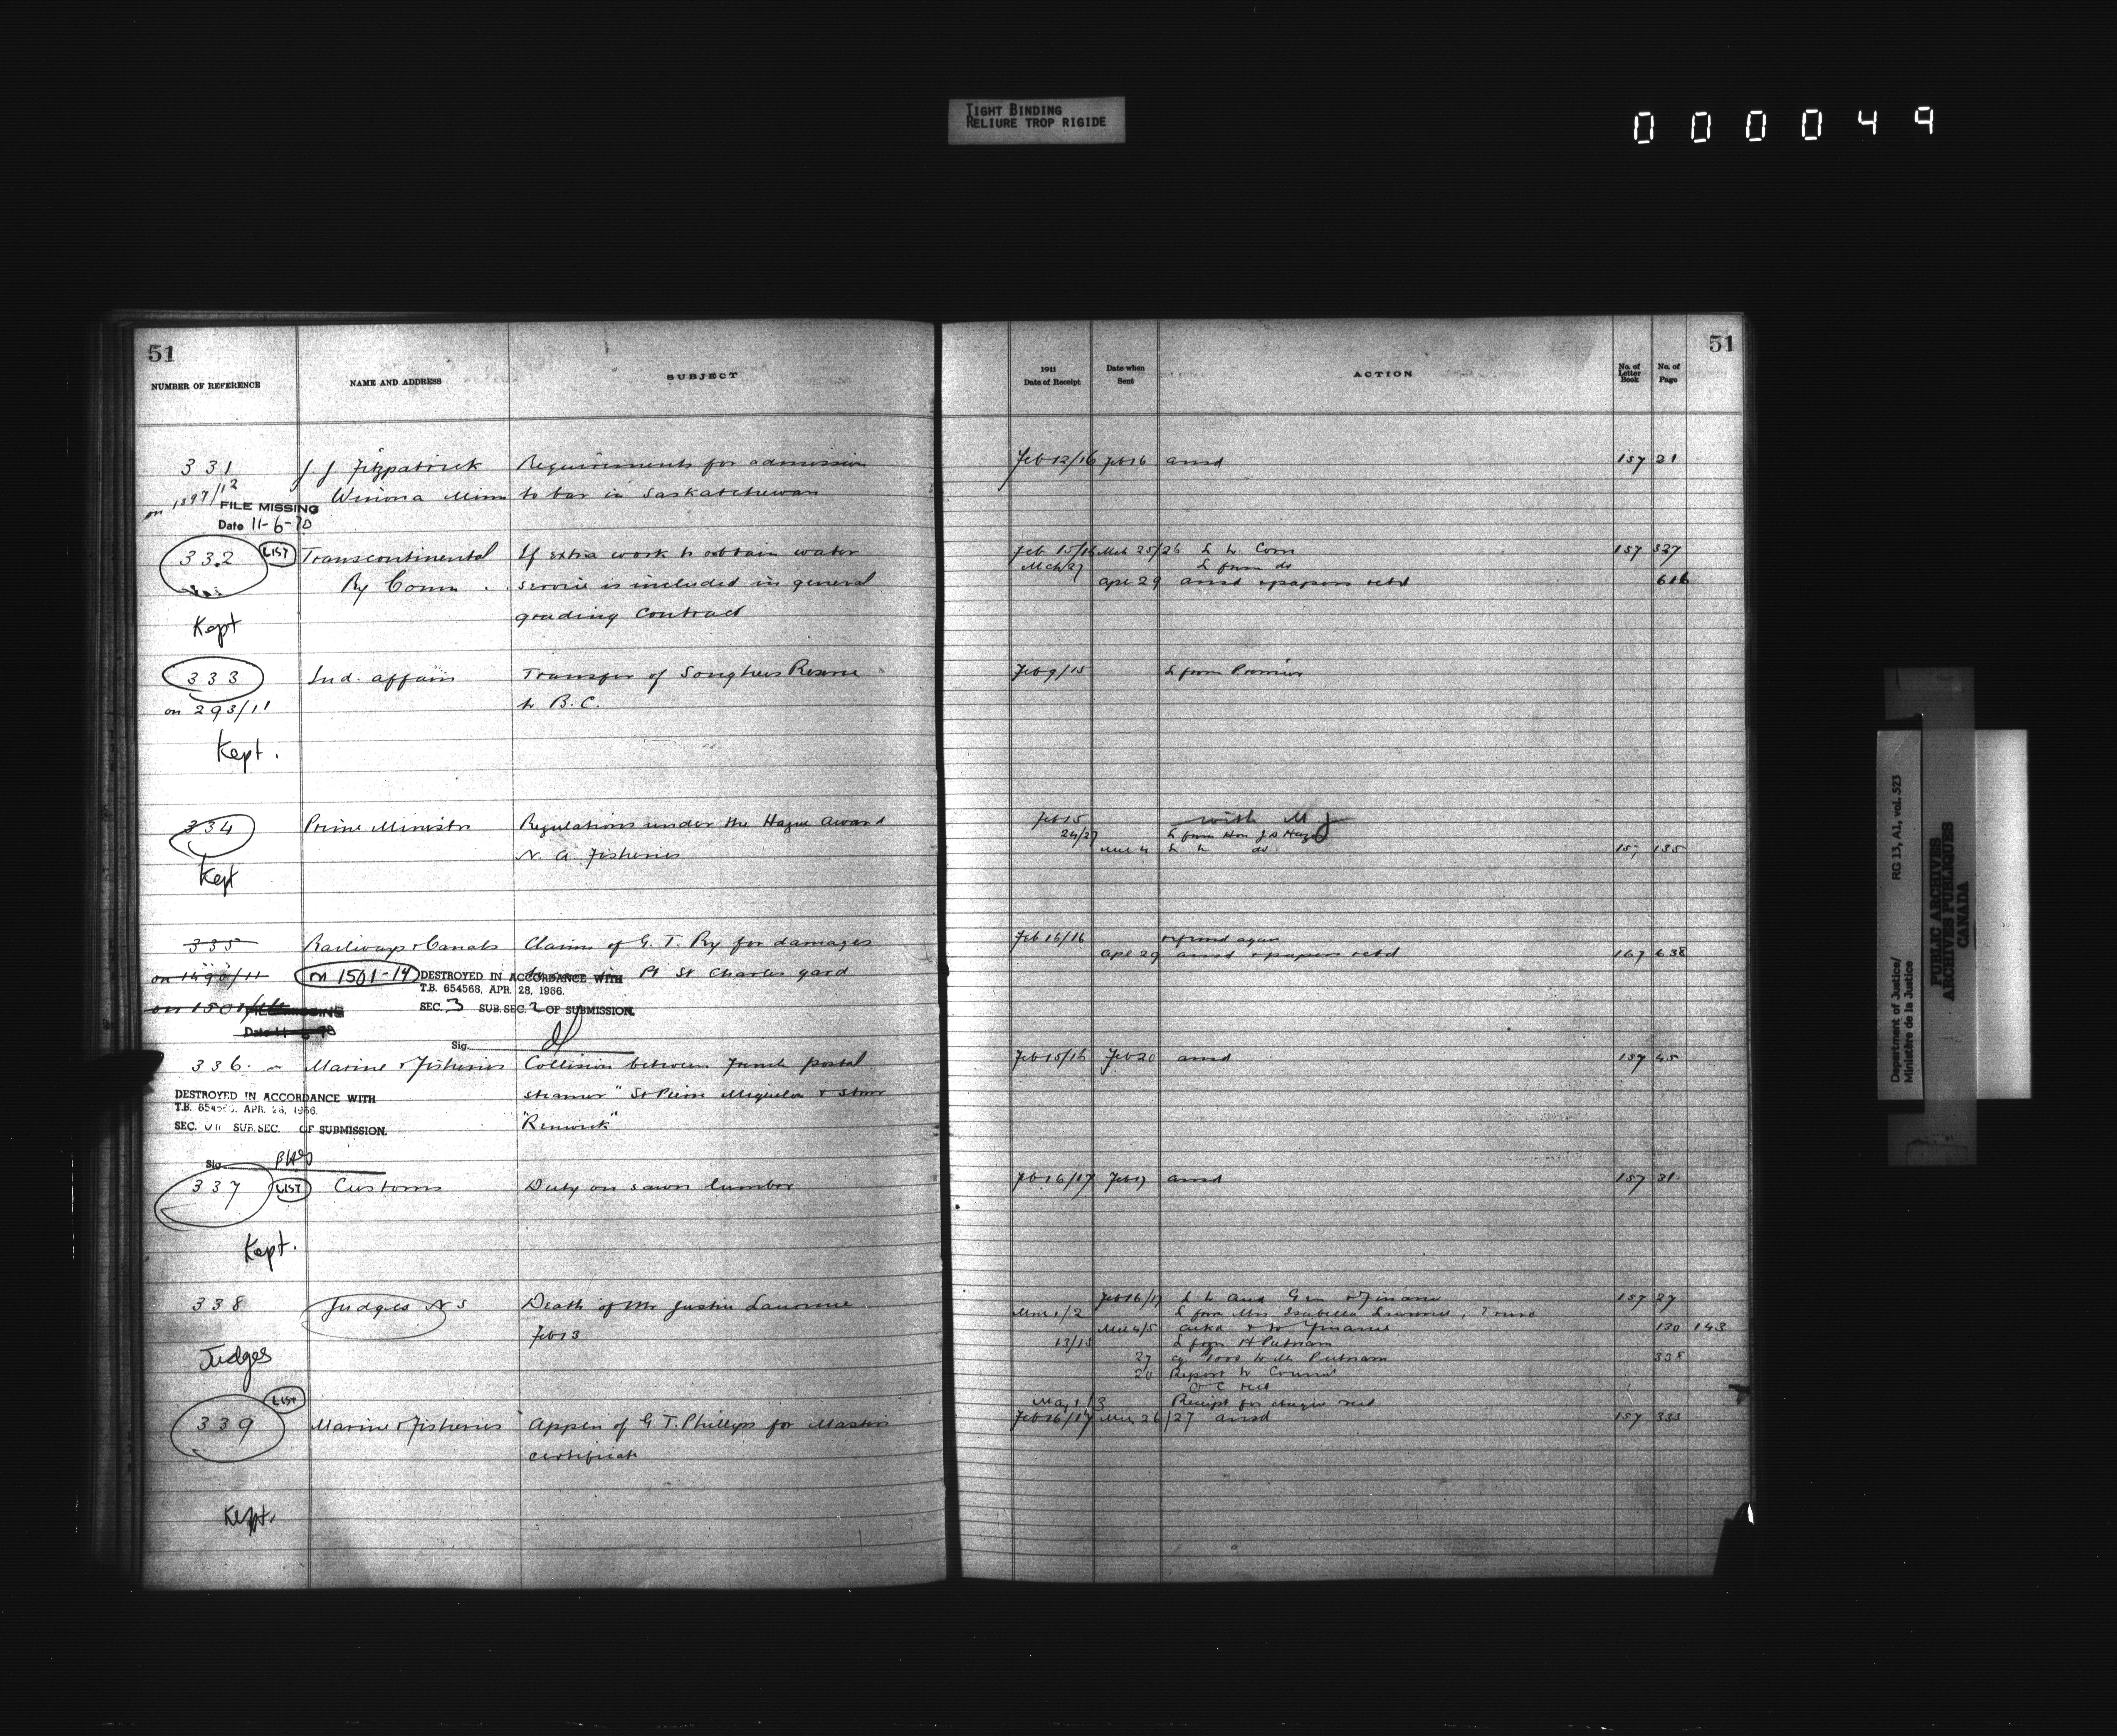 TIGHT BINDING
RELIURE TROP RIGIDE
000049
51
NUMBER OF REFERENCE NAME AND ADDRESS SUBJECT
331 J J Fitzpatrick Requirements for admission
on 1597/12 Winona Minn to bar in Saskatchewan
FILE MISSING
Date 11-6-70
332 LIST Transcontinental If extra work to obtain water
Ry Comm. service is included in general
Kept grading contract
333 Ind. affairs Transfer of Songhees Reserve
on 293/11 to B.C.
Kept.
334 Prime Minister Regulations under the Hague award
N. A. Fisheries
Kept
335 Railways & Canals Claim of G. T. Ry for damages
on 1490/11 on 1501-14 Pt St Charles yard
DESTROYED IN ACCORDANCE WITH
T.B. 654568, APR. 28, 1966.
on 1501/
SEC. 3 SUB.SEC. 2 OF SUBMISSION.
Sig.
336. Marine & Fisheries Collision between French postal
steamer "St Pierre Miquelon & Stmr
DESTROYED IN ACCORDANCE WITH
T.B. APR. 28, 1966.
"Renwick"
SEC. SUB.SEC. OF SUBMISSION.
Sig.
337 LIST Customs Duty on sawn lumber
Kept.
338 Judges N S Death of Mr Justice Laurence
Feb 13
Judges
LIST
339 Marine & Fisheries Appln of G. T. Phillips for Masters
certificate
Kept.
51
1911 Date of Receipt Date when Sent ACTION No. of Letter Book No. of Page
Feb 12/16 Feb 16 ansd 157 21
Feb 15/16 Mch 25/26 L to Com 157 327
Mch 27 L from do
Apl 29 ansd & papers retd 616
Feb 9/15 L from Premier
Feb 15 with M J
24/27 L from Hon J D
Mch 4 L to do 157 135
Feb 15/16
Apl 29 ansd & papers retd 167 638
Feb 15/16 Feb 20 ansd 157 45
Feb 16/17 Feb 17 ansd 157 31
Feb 16/17 L to Aud Gen & Finance 157 27
Mch 1/2 L from Mrs Isabella Laurence, Truro
Mch 4/5 ackd & to Finance 130 143
13/15 L from H Putnam
27 1000 to Mr Putnam 338
20 Report to Council
O C recd
May 1/3 Receipt for cheque recd
Feb 16/17 Mch 26/27 ansd 157 333
Department of Justice/ RG 13, A1, vol. 523
Ministère de la Justice
PUBLIC ARCHIVES
ARCHIVES PUBLIQUES
CANADA